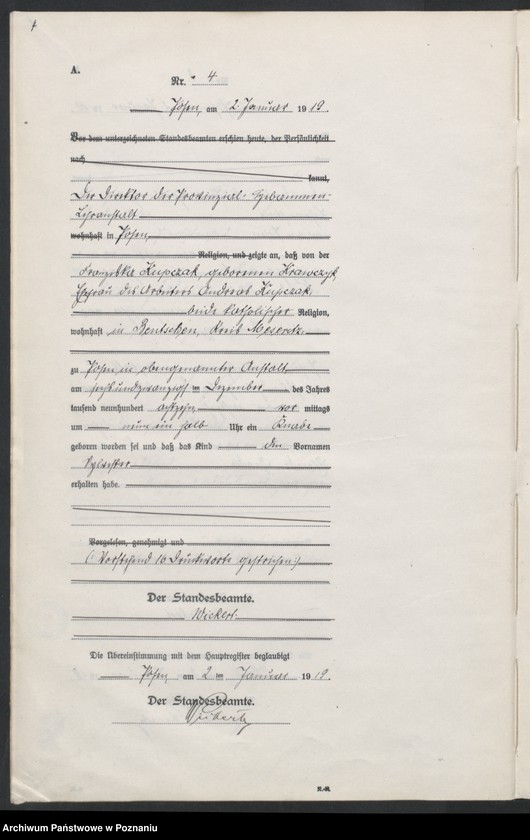 A.
Nr. 4
Posen, am 2. Januar 1919.
Vor dem unterzeichneten Standesbeamten erschien heute, der Persönlichkeit
nach
kannt,
Der Direktor der Provinzial-Hebammen-
Lehranstalt
wohnhaft in Posen,
Religion, und zeigte an, daß von der
Franziska Kupczak, geborenen Krawczyk,
Ehefrau des Arbeiters Andreas Kupczak,
beide katholischer Religion,
wohnhaft in Bentschen, Kreis Meseritz,
zu Posen in obengenannter Anstalt
am sechsundzwanzigsten Dezember des Jahres
tausend neunhundert achtzehn vor mittags
um neun ein halb Uhr ein Knabe
geboren worden sei und daß das Kind den Vornamen
Sylvester
erhalten habe.
Vorgelesen, genehmigt und
(Vorstehend 16 Druckworte gestrichen)
Der Standesbeamte.
Wickert
Die Übereinstimmung mit dem Hauptregister beglaubigt
Posen am 2 ten Januar 1919.
Der Standesbeamte.
K.-R.
Archiwum Państwowe w Poznaniu